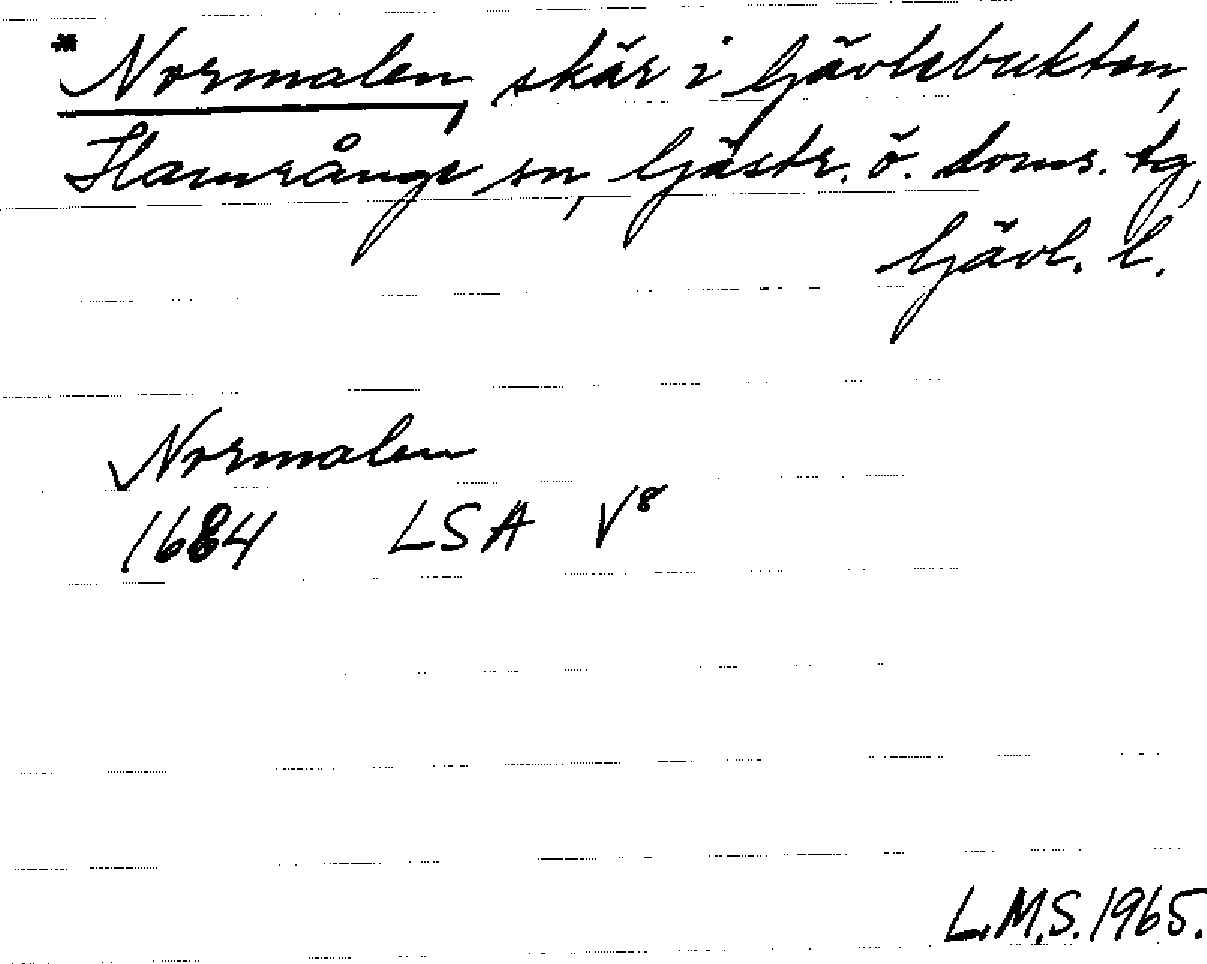 *Normalen, skär i Gävlebukten,
Hamrånge sn, Gästr. ö. doms. tg,
Gävl. l.
Normalen
1684 LSA V8
L.M.S. 1965.